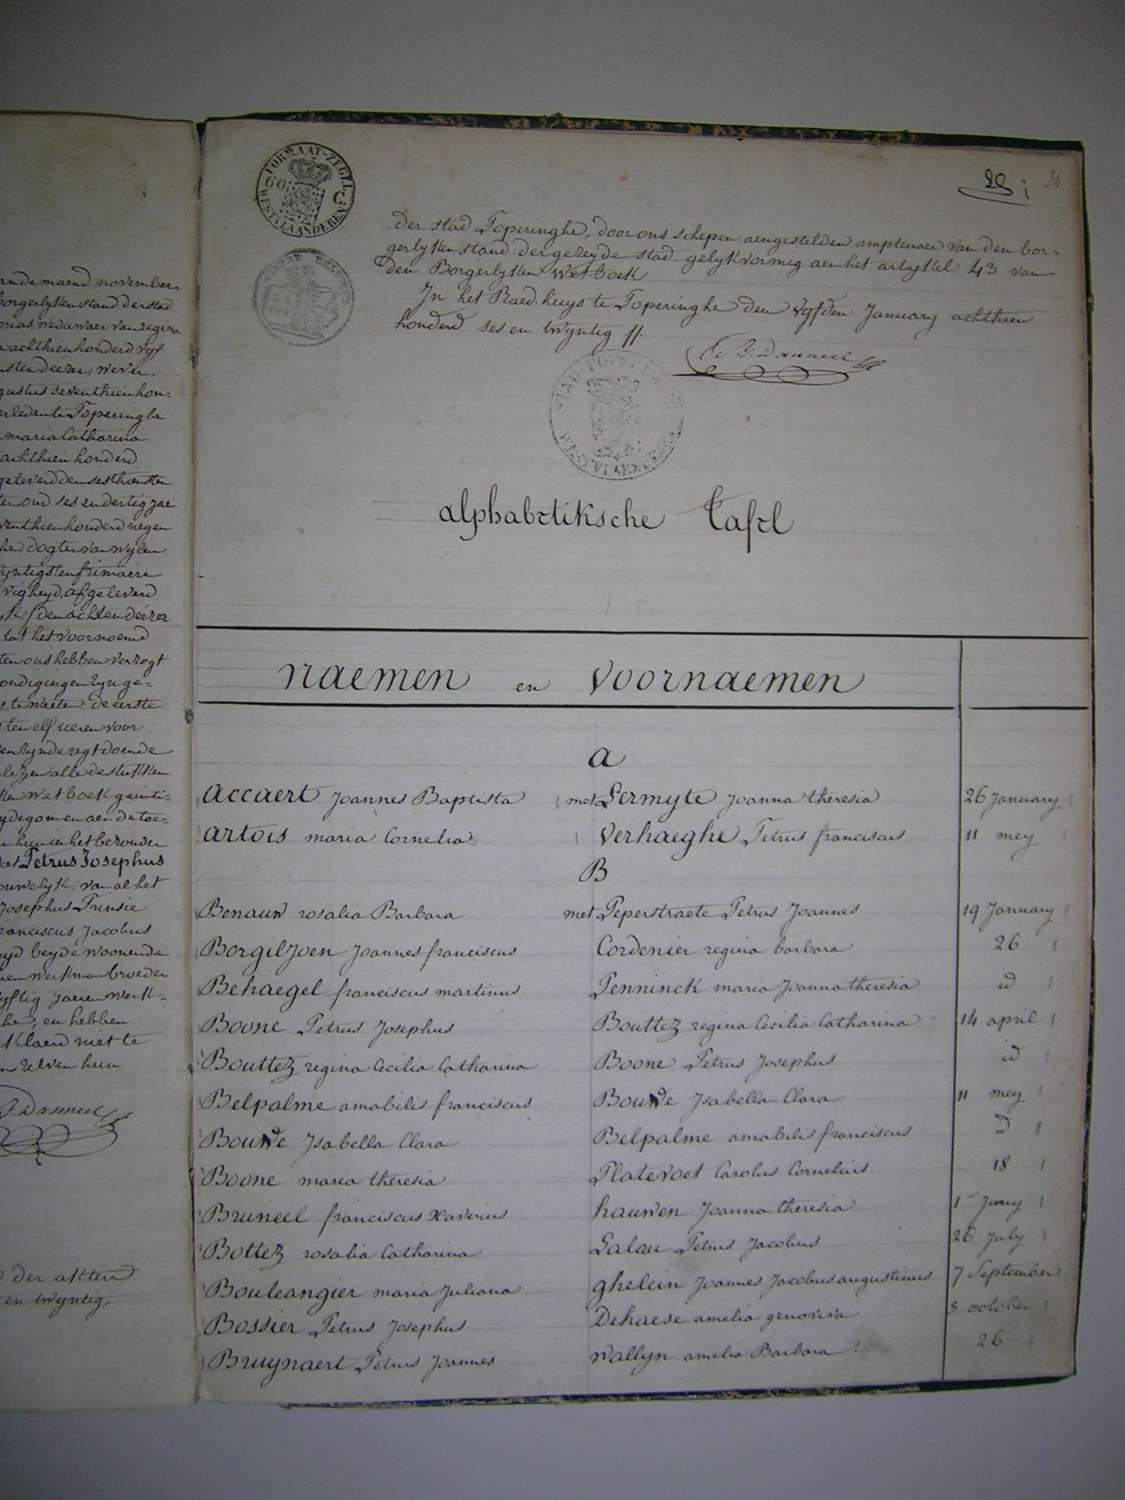 arndemaend november
borgerlyken stand der stad
orias, weduwaer van regina
achthienhonderd vyf
sten deezer, wever
gustus seventhienhon=
rleden te Poperinghe
maria Catharina
achthienhonderd
geleverd den sesthiensten
ter oud ses en dertig jae
venthienhonderd negen
he dogter van wylen
wyntigsten frimaire
vigheyd, afgeleverd
den achsten deezer
tot het voornoemd
ten ons hebben verzogt
ondigingen zyn ge=
s te weeten: de eerste
ten elf ueren voor
en zynde regtdoende
lezen alle de stukken
ken wetboek geinti=
ydegom en aen de toe=
n hun in het bezonder
Petrus Josephus
ouwelyk; van al het
Josephus Trinsie
ranciscus Jacobus
yd beyde woonende
en werkman broeder
yftig jaeren werk=
he, en hebben
klaerd niet te
n zelven hun
Danneel
der akten
en twyntig,
FORMAAT-ZEGEL
60 C
WESTVLAANDEREN
20 i 26
der stad Poperinghe, door ons schepen aengestelden amptenaer van den bor=
gerlyken stand der gezeyde stad, gelykvormig aen het artykel 43 van
den Borgerlyken Wetboek
In het Raed-huys te Poperinghe den vyfden January achthien
honderd ses en twyntig //.
B: Danneel
STAD POPERINGHE
WESTVLAENDEREN
alphabetiksche Tafel
naemen en voornaemen
A
Accaert Joannes Baptista met Lermyte Joanna theresia 26 January
Artois maria Cornelia Verhaeghe Petrus franciscus 11 mey
B
Benauw rosalia Barbara met Peperstraete Petrus Joannes 19 January
Borgiljoen Joannes franciscus Cordenier regina barbara 26
Behaegel franciscus martinus Penninck maria Joanna theresia id
Boone Petrus Josephus Bouttez regina Cecilia Catharina 14 april
Bouttez regina Cecilia Catharina Boone Petrus Josephus id
Belpalme amabilis franciscus Bouwe Isabella Clara 11 mey
Bouwe Isabella Clara Belpalme amabilis franciscus id
Boone maria theresia Platevoet Carolus Cornelius 18
Bruneel franciscus Xaverius hauwen Joanna theresia 1 Juny
Bottez rosalia Catharina Lalau Petrus Jacobus 26 July
Bouleangier maria Juliana ghelein Joannes Jacobus augustinus 7 September
Bossier Petrus Josephus Dehaese amelia genoviva 5 october
Bruynaert Petrus Joannes wallyn amelia Barbara 26